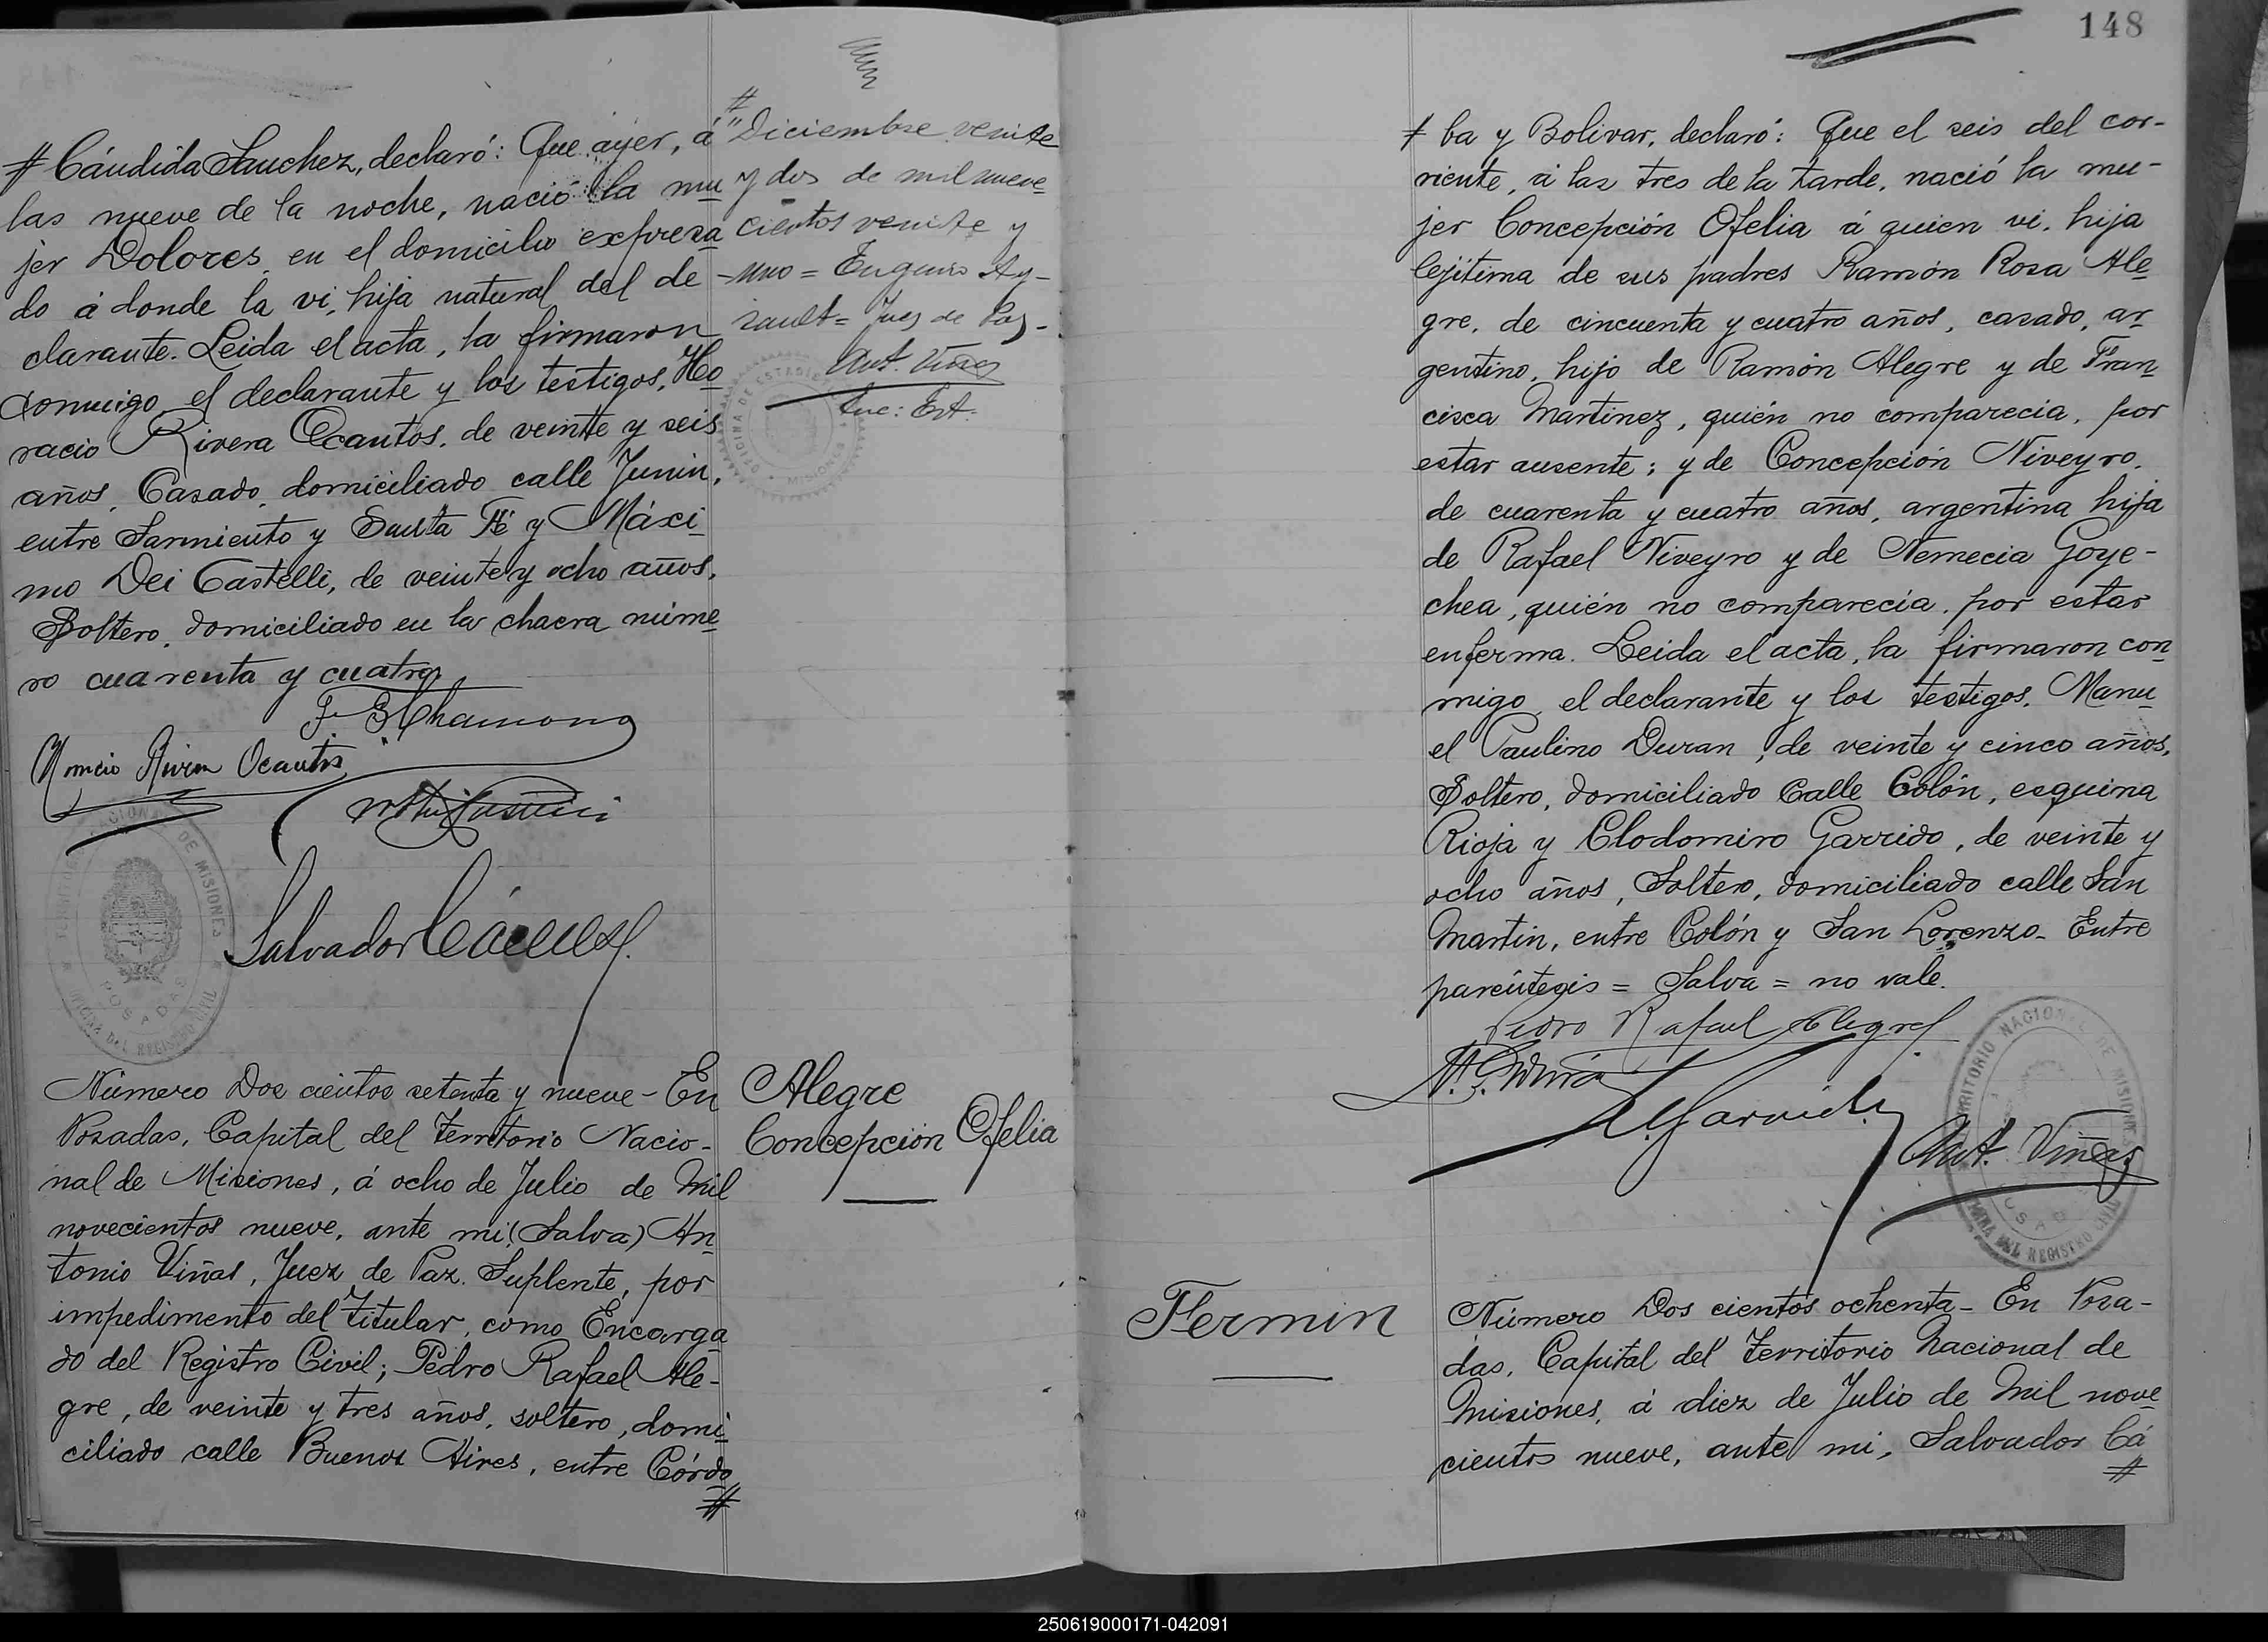 # Cándida Sanchez, declaró: Que ayer, á
las nueve de la noche, nació la mu
jer Dolores, en el domicilio expresa
do á donde la vi, hija natural del de
clarante. Leida el acta, la firmaron
conmigo, el declarante y los testigos, Ho
racio Rivera Ocantos, de veinte y seis
años, Casado, domiciliado calle Junin,
entre Sarmiento y Santa Fé y Máxi
mo Dei Castelli, de veinte y ocho años,
Soltero, domiciliado en la chacra núme
ro cuarenta y cuatro.
Horacio Rivera Ocantos
Salvador
TERRITORIO NACIONAL DE MISIONES
POSADAS
OFICINA DEL REGISTRO CIVIL
#
"Diciembre veinte
y dos de mil nueve
cientos veinte y
uno = Eugenio
= Juez de Paz -
Ant. Viñas
Enc: Est.
OFICINA DE ESTADISTICA
MISIONES
Número Dos cientos setenta y nueve - En
Posadas, Capital del Territorio Nacio-
nal de Misiones, á ocho de Julio de Mil
novecientos nueve, ante mi (Salva) An
tonio Viñas, Juez de Paz Suplente, por
impedimento del Titular, como Encarga
do del Registro Civil; Pedro Rafael Ale-
gre, de veinte y tres años, soltero, domi
ciliado calle Buenos Aires, entre Córdo
#
Alegre
Concepción Ofelia
148
# ba y Bolivar, declaró: Que el seis del cor-
riente, á las tres de la tarde, nació la mu-
jer Concepción Ofelia á quien vi, hija
lejítima de sus padres Ramón Rosa Ale
gre, de cincuenta y cuatro años, casado, ar
gentino, hijo de Ramón Alegre y de Fran
cisca Martinez, quién no comparecia, por
estar ausente; y de Concepción Niveyro,
de cuarenta y cuatro años, argentina hija
de Rafael Niveyro y de Nemecia Goye-
chea, quién no comparecia, por estar
enferma. Leida el acta, la firmaron con
migo, el declarante y los testigos, Manu
el Paulino Duran, de veinte y cinco años,
Soltero, domiciliado Calle Colón, esquina
Rioja y Clodomiro Garrido, de veinte y
ocho años, Soltero, domiciliado calle San
Martin, entre Colón y San Lorenzo - Entre
paréntegis = Salva = no vale.
Pedro Rafael Alegre
Garrido
Ant. Viñas
TERRITORIO NACIONAL DE MISIONES
POSADAS
OFICINA DEL REGISTRO CIVIL
Fermin
Número Dos cientos ochenta - En Posa-
das, Capital del Territorio Nacional de
Misiones, á diez de Julio de Mil nove
cientos nueve, ante mi, Salvador Cá
#
250619000171-042091